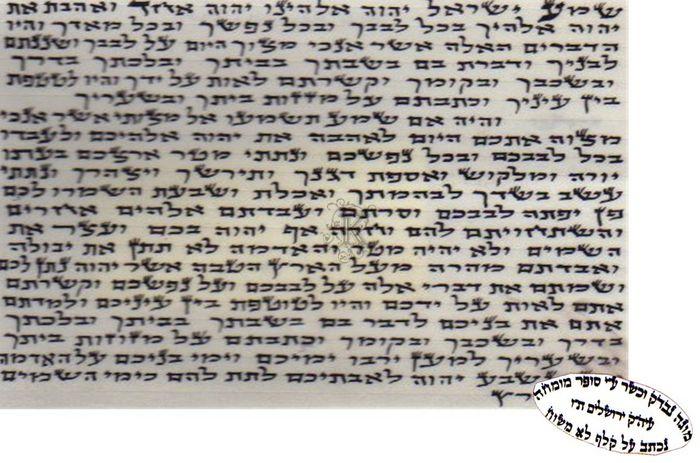 שמע ישראל יהוה אלהינו יהוה אחד ואהבת את
יהוה אלהיך בכל לבבך ובכל נפשך ובכל מאדך והיו
הדברים האלה אשר אנכי מצוך היום על לבבך ושננתם
לבניך ודברת בם בשבתך בביתך ובלכתך בדרך
ובשכבך ובקומך וקשרתם לאות על ידך והיו לטטפת
בין עיניך וכתבתם על מזזות ביתך ובשעריך
והיה אם שמע תשמעו אל מצותי אשר אנכי
מצוה אתכם היום לאהבה את יהוה אלהיכם ולעבדו
בכל לבבכם ובכל נפשכם ונתתי מטר ארצכם בעתו
יורה ומלקוש ואספת דגנך ותירשך ויצהרך ונתתי
עשב בשדך לבהמתך ואכלת ושבעת השמרו לכם
פן יפתה לבבכם וסרתם ועבדתם אלהים אחרים
והשתחויתם להם וחרה אף יהוה בכם ועצר את
השמים ולא יהיה מטר והאדמה לא תתן את יבולה
ואבדתם מהרה מעל הארץ הטבה אשר יהוה נתן לכם
ושמתם את דברי אלה על לבבכם ועל נפשכם וקשרתם
אתם לאות על ידכם והיו לטוטפת בין עיניכם ולמדתם
אתם את בניכם לדבר בם בשבתך בביתך ובלכתך
בדרך ובשכבך ובקומך וכתבתם על מזוזות ביתך
ובשעריך למען ירבו ימיכם וימי בניכם על האדמה
שבע יהוה לאבתיכם לתת להם כימי השמים
רץ
מוגה נבדק וכשר ע״י סופר מומחה
עיה״ק ירושלים ת״ו
נכתב על קלף לא משוח